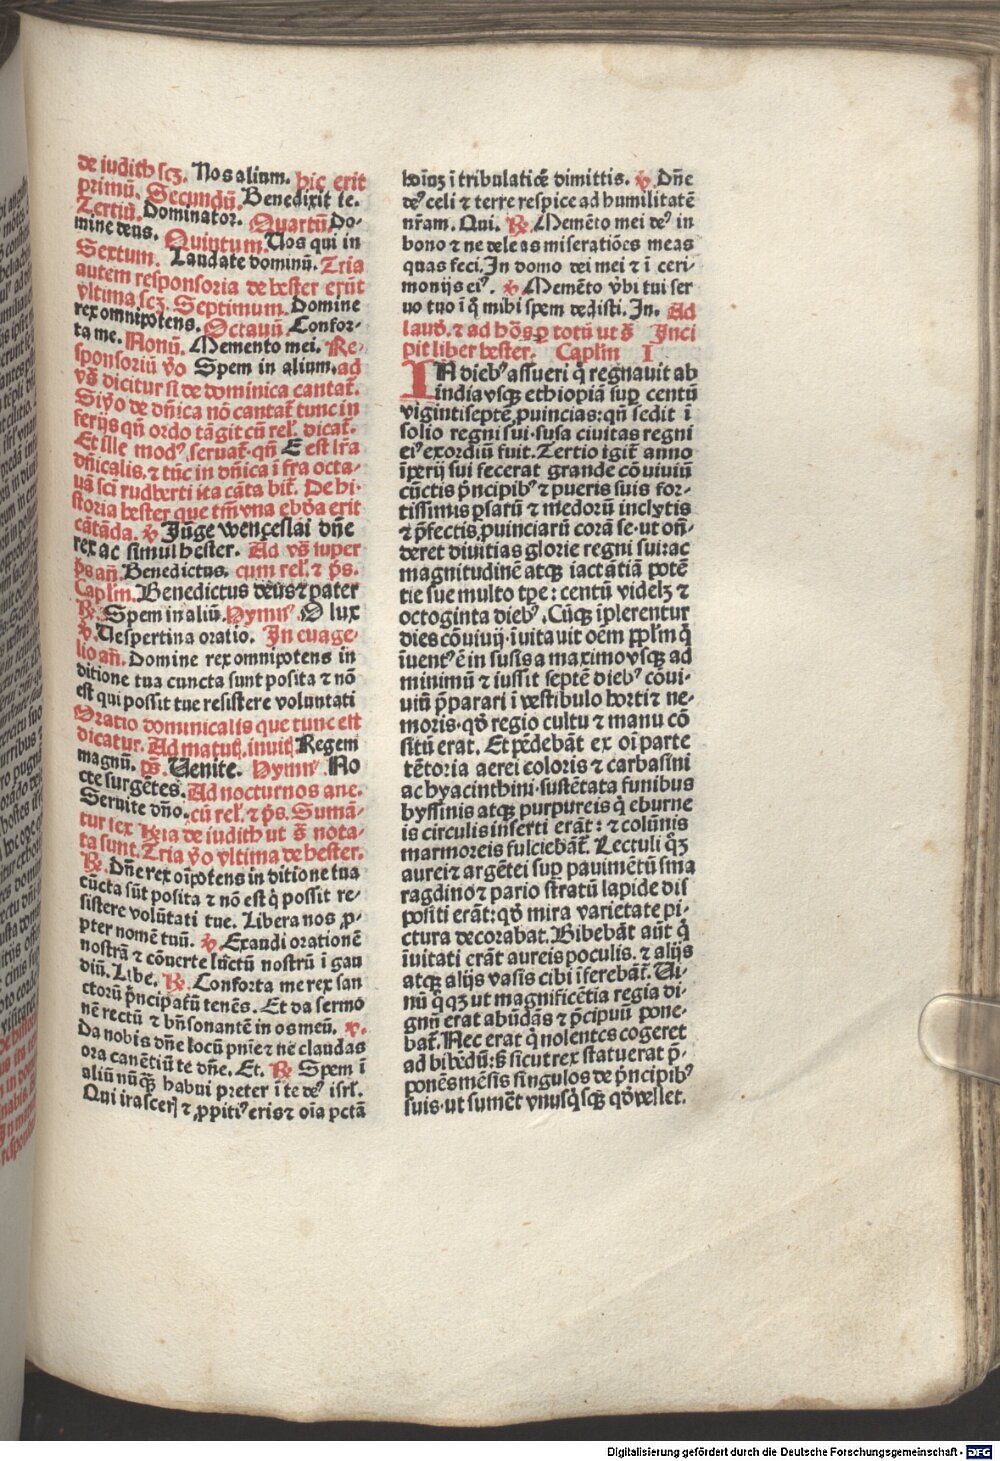 de iudith scz. Nos alium. hic erit
primū. Secundū. Benedixit te.
Tertiū. Dominator. Quartū Do-
mine deus. Quintum. Vos qui in
Sextum. Laudate dominū. Tria
autem responsoria de hester erūt
vltima scz. Septimum. Domine
rex omnipotens. Octauū. Confor-
ta me. Nonū. Memento mei. Re-
sponsoriū v̊o Spem in alium. ad
vs̄ dicitur si de dominica cantat̄.
Si v̊o de dn̄ica nō cantat̄ tunc in
ferijs qn̄ ordo tāgit cū rel̄. dicat̄.
Et ille modꝰ seruat̄. qn̄ E est lr̄a
dn̄icalis. ⁊ tūc in dn̄ica ī fra octa-
uā sci rudberti ita cāta bit̄. De hi-
storia hester que tm̄ vna ebda erit
cātāda. ℣ Jūge wenceslai dn̄e
rex ac simul hester. Ad vs̄ super
ps̄ an̄. Benedictus. cum rel̄. ⁊ ps̄.
Caplm̄. Benedictus deus ⁊ pater
℟. Spem in aliū. Hymnꝰ O lux
℣. Vespertina oratio. In euāge-
lio an̄. Domine rex omnipotens in
ditione tua cuncta sunt posita ⁊ nō
est qui possit tue resistere voluntati
Oratio dominicalis que tunc est
dicatur. Ad matut̄. inuit̄ Regem
magnū. ps̄. Venite. Hymnꝰ No
cte surgētes. Ad nocturnos ane.
Seruite dn̄o. cū rel̄. ⁊ ps̄. Sumā-
tur sex Rn̄ia de iudith ut s̄ nota-
ta sunt. Tria v̊o vltima de hester.
℟. Dn̄e rex oīpotens in ditione tua
cūcta sūt posita ⁊ nō est q̇ possit re-
sistere volūtati tue. Libera nos ꝓ-
pter nomē tuū. ℣ Exaudi orationē
nostrā ⁊ cōuerte luctū nostrū ī gau
diū. Libe. ℟. Conforta me rex san
ctorū pncipatū tenēs. Et da sermo
nē rectū ⁊ bn̄ sonantē in os meū. ℣.
Da nobis dn̄e locū pn̄ie ⁊ ne claudas
ora canētiū te dn̄e. Et. ℟ Spem ī
aliū nūꝙ̄ habui preter ī te deꝰ isrl̄.
Qui irasceri ⁊ ꝓpitiꝰ eris ⁊ oīa pctā
hoīuꝫ ī tribulatiōe dimittis. ℣ Dn̄e
deꝰ celi ⁊ terre respice ad humilitatē
nr̄am. Qui. ℟ Memēto mei deꝰ in
bono ⁊ ne deleas miseratiōes meas
quas feci. In domo dei mei ⁊ ī ceri-
monijs eiꝰ. ℣ Memēto v̊bi tui ser
uo tuo ī q̊ mihi spem dedisti. In. Ad
laud̄. ⁊ ad hōs ꝑ totū ut s̄ Inci
pit liber hester. Caplm̄ I
IN diebꝰ assueri q̇ regnauit ab
india vsqꝫ ethiopiā suꝑ centū
vigintiseptē ꝓuincias: qn̄ sedit ī
solio regni sui. susa ciuitas regni
eiꝰ exordiū fuit. Tertio igit̄ anno
īperij sui fecerat grande cōuiuiū
cūctis pncipibꝰ ⁊ pueris suis for-
tissimis ꝑsarū ⁊ medorū inclytis
⁊ pfectis ꝓuinciarū corā se. ut on̄-
deret diuitias glorie regni sui: ac
magnitudinē atqꝫ iactātiā potē
tie sue multo tp̄e: centū videlꝫ ⁊
octoginta diebꝰ. Cūqꝫ īplerentur
dies cōuiuij. īuitauit oēm ppl̄m q̇
īuentꝰ ē in susis a maximo vsqꝫ ad
minimū ⁊ iussit septē diebꝰ cōui-
uiū pparari ī vestibulo horti ⁊ ne-
moris. qd̄ regio cultu ⁊ manu cō
sitū erat. Et pēdebāt ex oī parte
tētoria aerei coloris ⁊ carbasini
ac hyacinthini. sustētata funibus
byssinis atqꝫ purpureis q̇ eburne
is circulis inserti erāt: ⁊ colūnis
marmoreis fulciebāt̄. Lectuli qꝫ
aurei ⁊ argētei suꝑ pauimētū sma
ragdino ⁊ pario stratū lapide dis
positi erāt: qd̄ mira varietate pi-
ctura decorabat. Bibebāt aūt q̇
īuitati erāt aureis poculis. ⁊ alijs
atqꝫ alijs vasis cibi īferebāt̄. Vi-
nū q̊qꝫ ut magnificētia regia di-
gnū erat abūdās ⁊ pcipuū pone-
bat̄. Nec erat q̇ nolentes cogeret
ad bibēdū: s̄ sicut rex statuerat p-
ponēs mēsis singulos de pncipibꝰ
suis. ut sumēt vnusq̇sqꝫ qd̄ vellet.
Digitalisierung gefördert durch die Deutsche Forschungsgemeinschaft - DFG